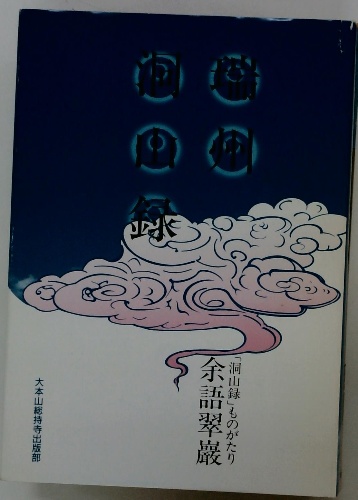 瑞州
洞山録
「洞山録」ものがたり
余語翠巖
大本山総持寺出版部